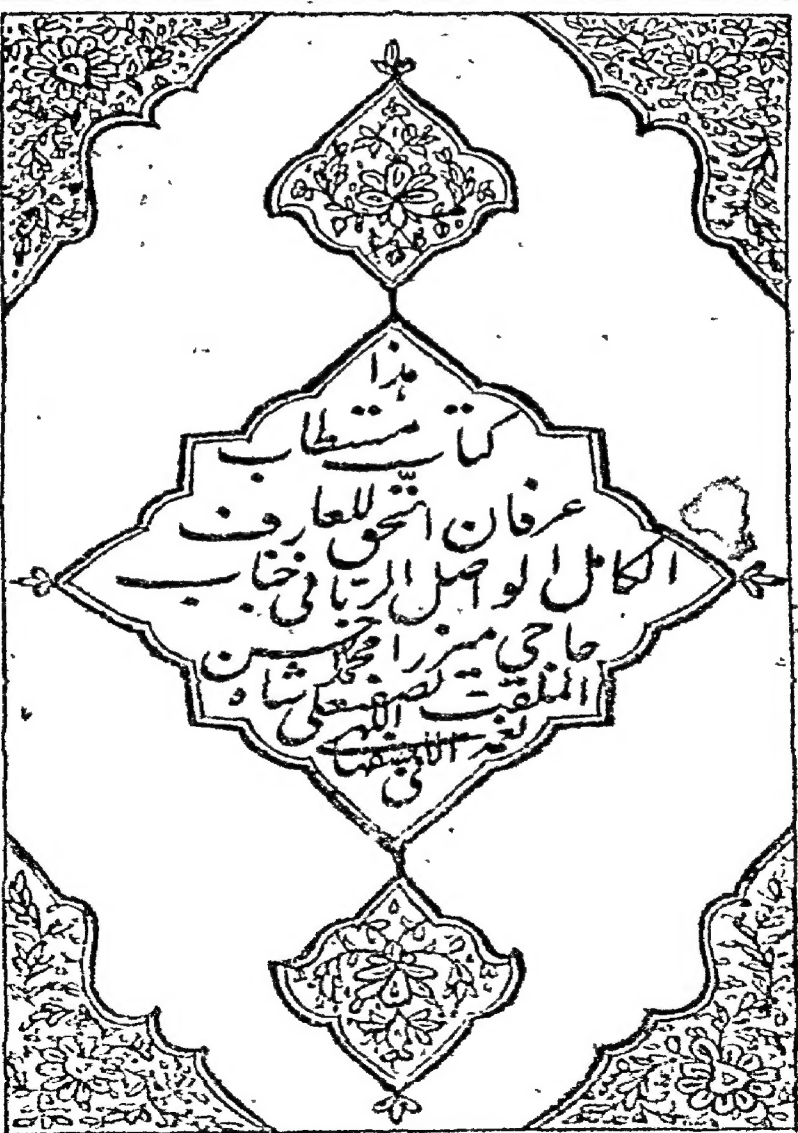 هذا
کتاب مستطاب
عرفان الحق للعارف
الکامل الواصل الربانی جناب
حاجی میرزا محمد حسن
الملقب بصفیعلی شاه
الاصفهانی